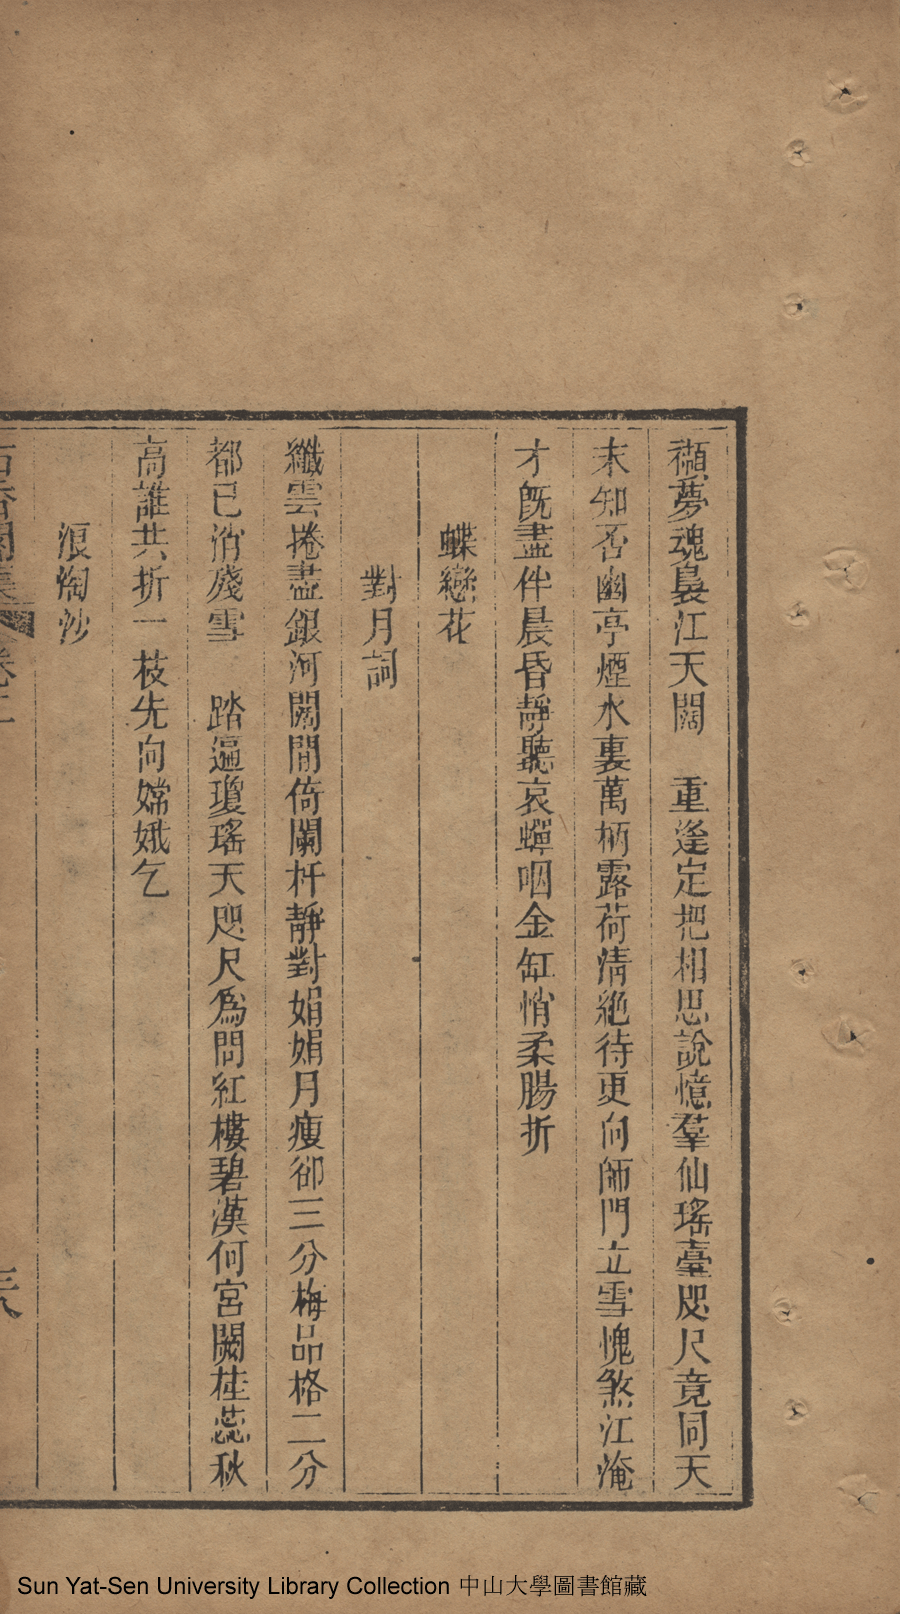 襭夢魂裊江天闊　重逢定把相思說憶羣仙瑤臺咫尺竟同天
末知否幽亭煙水裏萬柄露荷清絕待更向師門立雪愧煞江淹
才旣盡伴晨昏靜聽哀蟬咽金缸悄柔腸折
蝶戀花
對月詞
纖雲捲盡銀河闊閒倚闌杆靜對娟娟月瘦卻三分梅品格二分
都已消殘雪　踏遍瓊瑤天咫尺爲問紅樓碧漢何宮闕桂蕊秋
高誰共折一枝先向嫦娥乞
浪淘沙
香閣集 卷二
三八
Sun Yat-Sen University Library Collection 中山大學圖書館藏